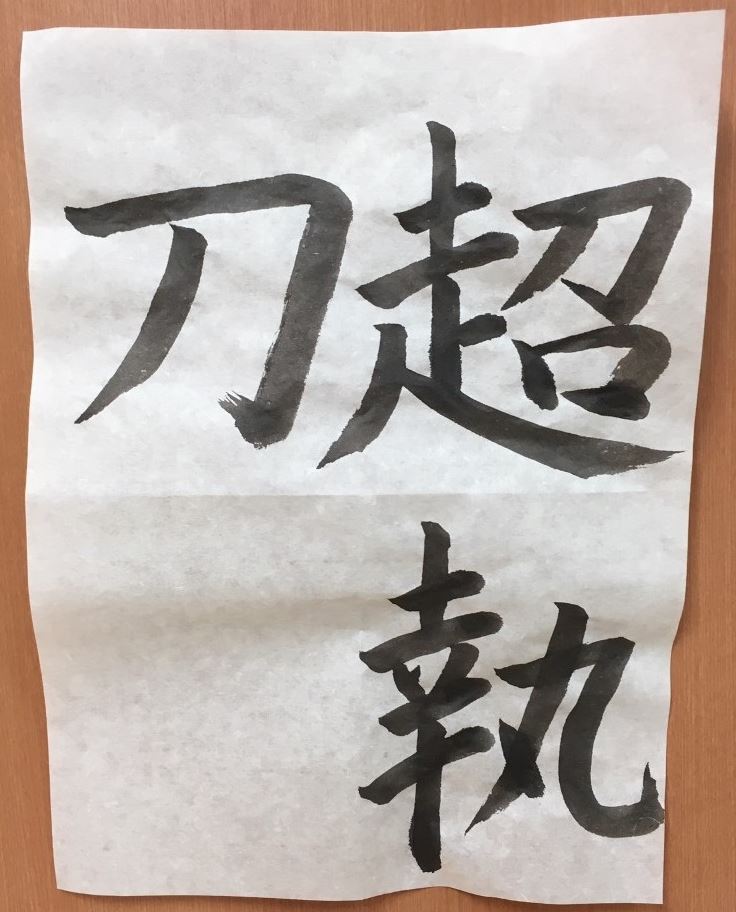 超執
刀